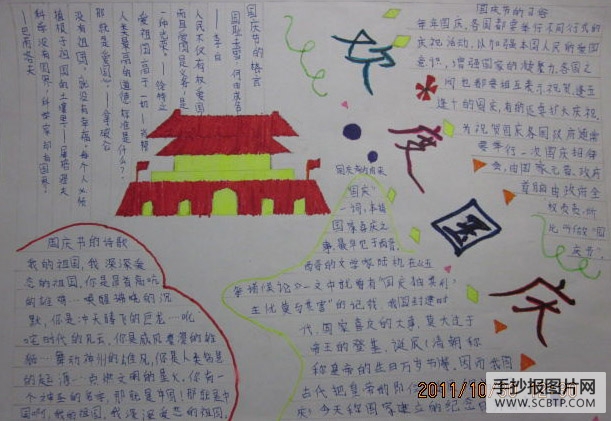 国庆节的格言
国耻未雪，何由成名
——李白
人民不仅有权爱国
而且爱国是义务，是
一种光荣。——徐特立
爱祖国高于一切——肖邦
人类最高的道德标准是什么？
那就是爱国心——拿破仑
没有祖国，就没有幸福。每个人必须
植根于祖国的土壤里——屠格涅夫
科学没有国界，科学家却有国界。
——巴甫洛夫
欢度国庆
国庆节的习俗
每年国庆，各国都要举行不同形式的
庆祝活动，以加强本国人民的爱国
意识，增强国家的凝聚力，各国之
间也都要相互表示祝贺，逢五
逢十的国庆，有的还要扩大庆祝，
为祝贺国庆各国政府通常
要举行一次国庆招待
会，由国家元首，政府
首脑
国庆节的由来
"国庆"
一词，本指
国家喜庆之
事，最早见于西晋，
西晋的文学家陆机在《五
等诸侯论》一文中就曾有"国庆独飨其利，
主忧莫与其害"的记载，我国封建时
代，国家喜庆的大事，莫大过于
帝王的登基，诞辰（清朝称
称皇帝的生日万岁节）等，因而我国
古代把皇帝即位
今天称国家建立的纪念
国庆节的诗歌
我的祖国，我深深爱
恋的祖国，你是昂首高吭
的雄鸡…唤醒拂晓的沉
默，你是冲天腾飞的巨龙…叱
咤时代的风云，你是威风凛凛的雄
狮…舞动神州的雄风，你是人类智慧
的起源…点燃文明的星火，你有一
个神圣的名字，那就是中国！那就是中
国啊，我的祖国，我深深爱恋的祖国，
2011/10/
手抄报图片网
WWW.SCBTP.COM